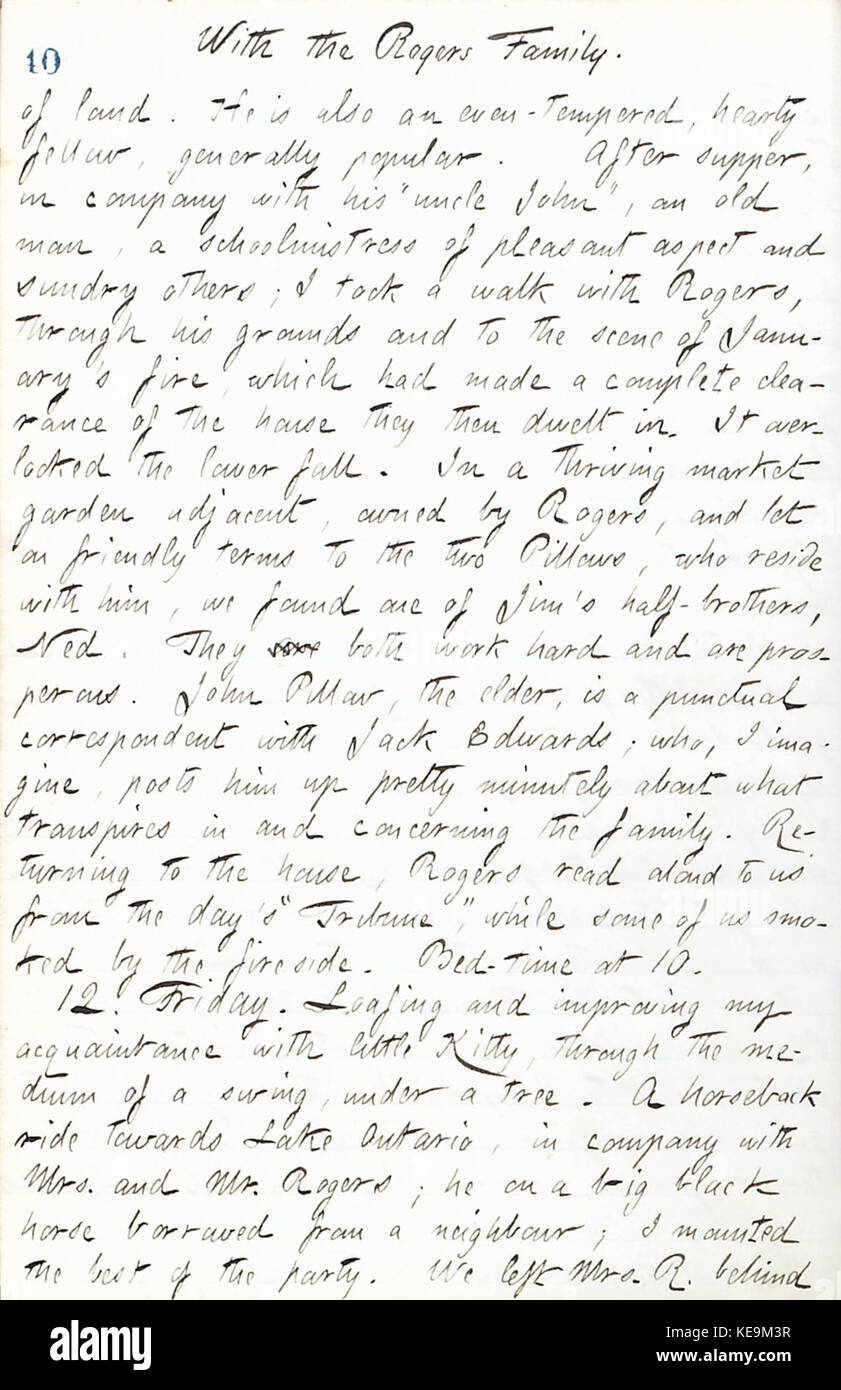 10
With the Rogers Family.
of land. He is also an even-tempered, hearty
fellow, generally popular. After supper,
in company with his "uncle John", an old
man, a schoolmistress of pleasant aspect and
sundry others; I took a walk with Rogers,
through his grounds and to the scene of Janu-
ary's fire, which had made a complete clea-
rance of the house they then dwelt in. It over-
looked the lower fall. In a thriving market
garden adjacent, owned by Rogers, and let
on friendly terms to the two Pillows, who reside
with him, we found one of Jim's half-brothers,
Ned. They both work hard and are pros-
perous. John Pillow, the elder, is a punctual
correspondent with Jack Edwards; who, I ima-
gine, posts him up pretty minutely about what
transpires in and concerning the family. Re-
turning to the house, Rogers read aloud to us
from the day's "Tribune", while some of us smo-
ked by the fireside. Bed-time at 10.
12. Friday. Loafing and improving my
acquaintance with little Kitty, through the me-
dium of a swing, under a tree. A horseback
ride towards Lake Ontario, in company with
Mrs. and Mr. Rogers; he on a big black
horse borrowed from a neighbour; I mounted
the best of the party. We left Mrs. R. behind
alamy
Image ID: KE9M3R
www.alamy.com